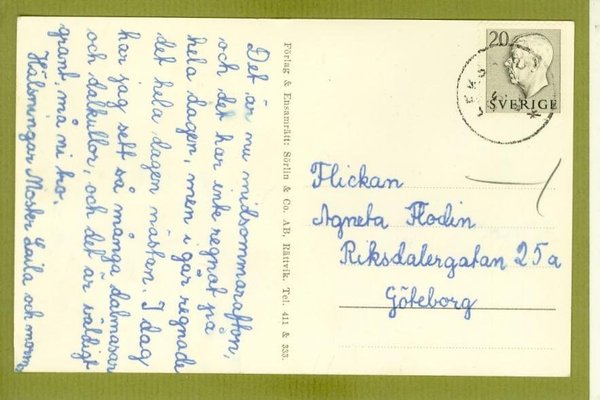 Det är nu midsommarafton,
och det har inte regnat på
hela dagen, men i går regnade
det hela dagen nästan. I dag
har jag sett så många dalmasar
och dalkullor, och det är väldigt
grant, må ni tro.
Hälsningar Moster Laila och mormor
Förlag & Ensamrätt: Sörlin & Co. AB, Rättvik. Tel. 411 & 333.
20
SVERIGE
Flickan
Agneta Flodin
Riksdalergatan 25a
Göteborg